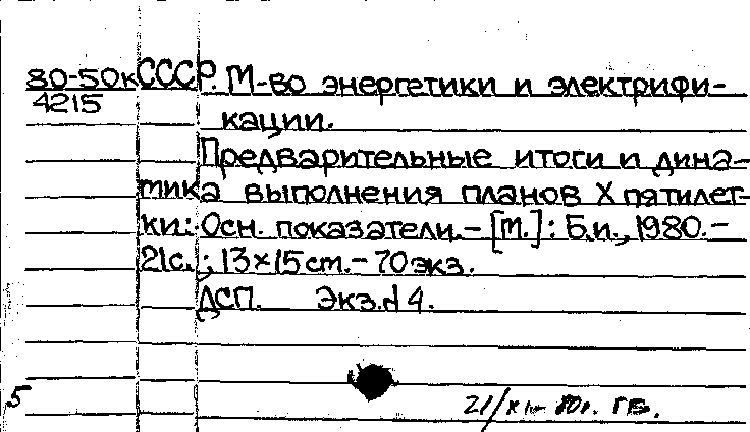 80-50к СССР. М-во энергетики и электрифи-
4215
кации.
Предварительные итоги и дина-
мика выполнения планов X пятилет-
ки: Осн. показатели. - [М.]: Б.и., 1980. -
21с. ; 13×15 см. - 70 экз.
ДСП. Экз.№ 4.
5
21/XI- 80г. ГБ.